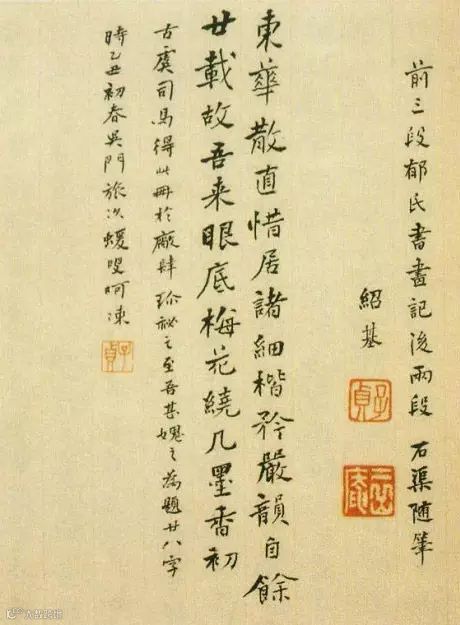 前三段郁氏書畫記後兩段石渠隨筆
紹基
子貞
東華散直惜居諸細楷矜嚴韻自餘
廿載故吾来眼底梅花繞几墨香初
古虞司馬得此冊於廠肆珍秘之至吾甚愧之為題廿八字
時乙丑初春吳門旅次蝯叟呵凍
子貞